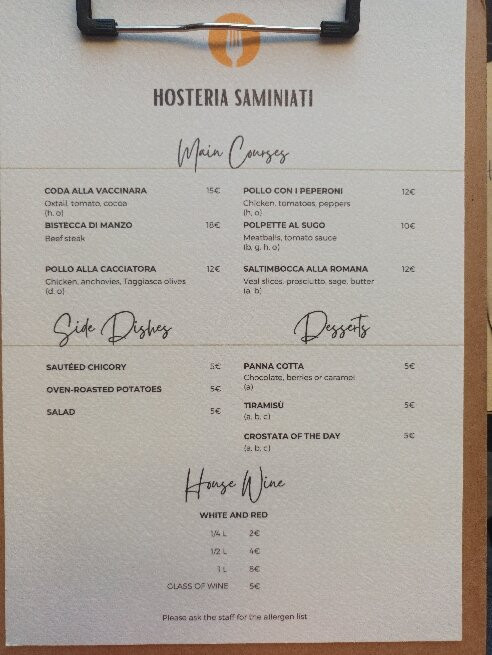 HOSTERIA SAMINIATI
Main Courses
CODA ALLA VACCINARA 15€
Oxtail, tomato, cocoa
(h, o)
BISTECCA DI MANZO 18€
Beef steak
POLLO ALLA CACCIATORA 12€
Chicken, anchovies, Taggiasca olives
(d, o)
POLLO CON I PEPERONI 12€
Chicken, tomatoes, peppers
(h, o)
POLPETTE AL SUGO 10€
Meatballs, tomato sauce
(b, g, h, o)
SALTIMBOCCA ALLA ROMANA 12€
Veal slices, prosciutto, sage, butter
(a, b)
Side Dishes
SAUTÉED CHICORY 5€
OVEN-ROASTED POTATOES 5€
SALAD 5€
Desserts
PANNA COTTA 5€
Chocolate, berries or caramel
(a)
TIRAMISÙ 5€
(a, b, c)
CROSTATA OF THE DAY 5€
(a, b, c)
House Wine
WHITE AND RED
1/4 L 2€
1/2 L 4€
1 L 8€
GLASS OF WINE 5€
Please ask the staff for the allergen list